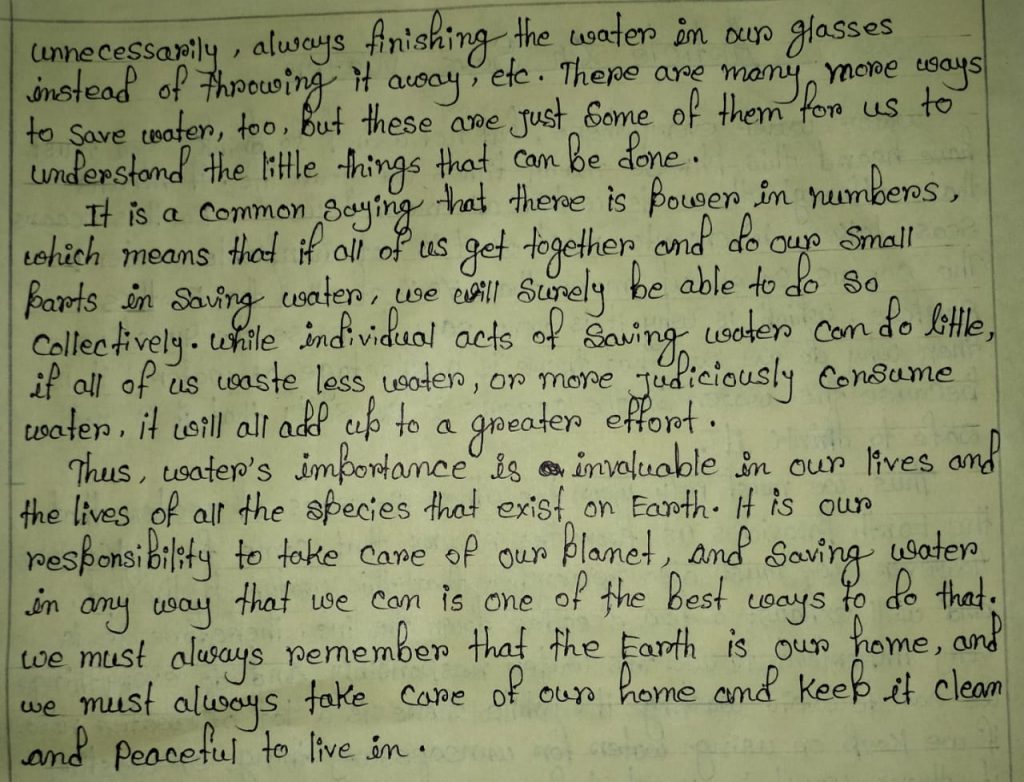 unnecessarily, always finishing the water in our glasses
instead of throwing it away, etc. There are many more ways
to save water, too, but these are just some of them for us to
understand the little things that can be done.
It is a common saying that there is power in numbers,
which means that if all of us get together and do our small
parts in saving water, we will surely be able to do so
collectively. while individual acts of saving water can do little,
if all of us waste less water, or more judiciously consume
water, it will all add up to a greater effort.
Thus, water's importance is invaluable in our lives and
the lives of all the species that exist on Earth. It is our
responsibility to take care of our planet, and saving water
in any way that we can is one of the best ways to do that.
we must always remember that the Earth is our home, and
we must always take care of our home and keep it clean
and peaceful to live in.